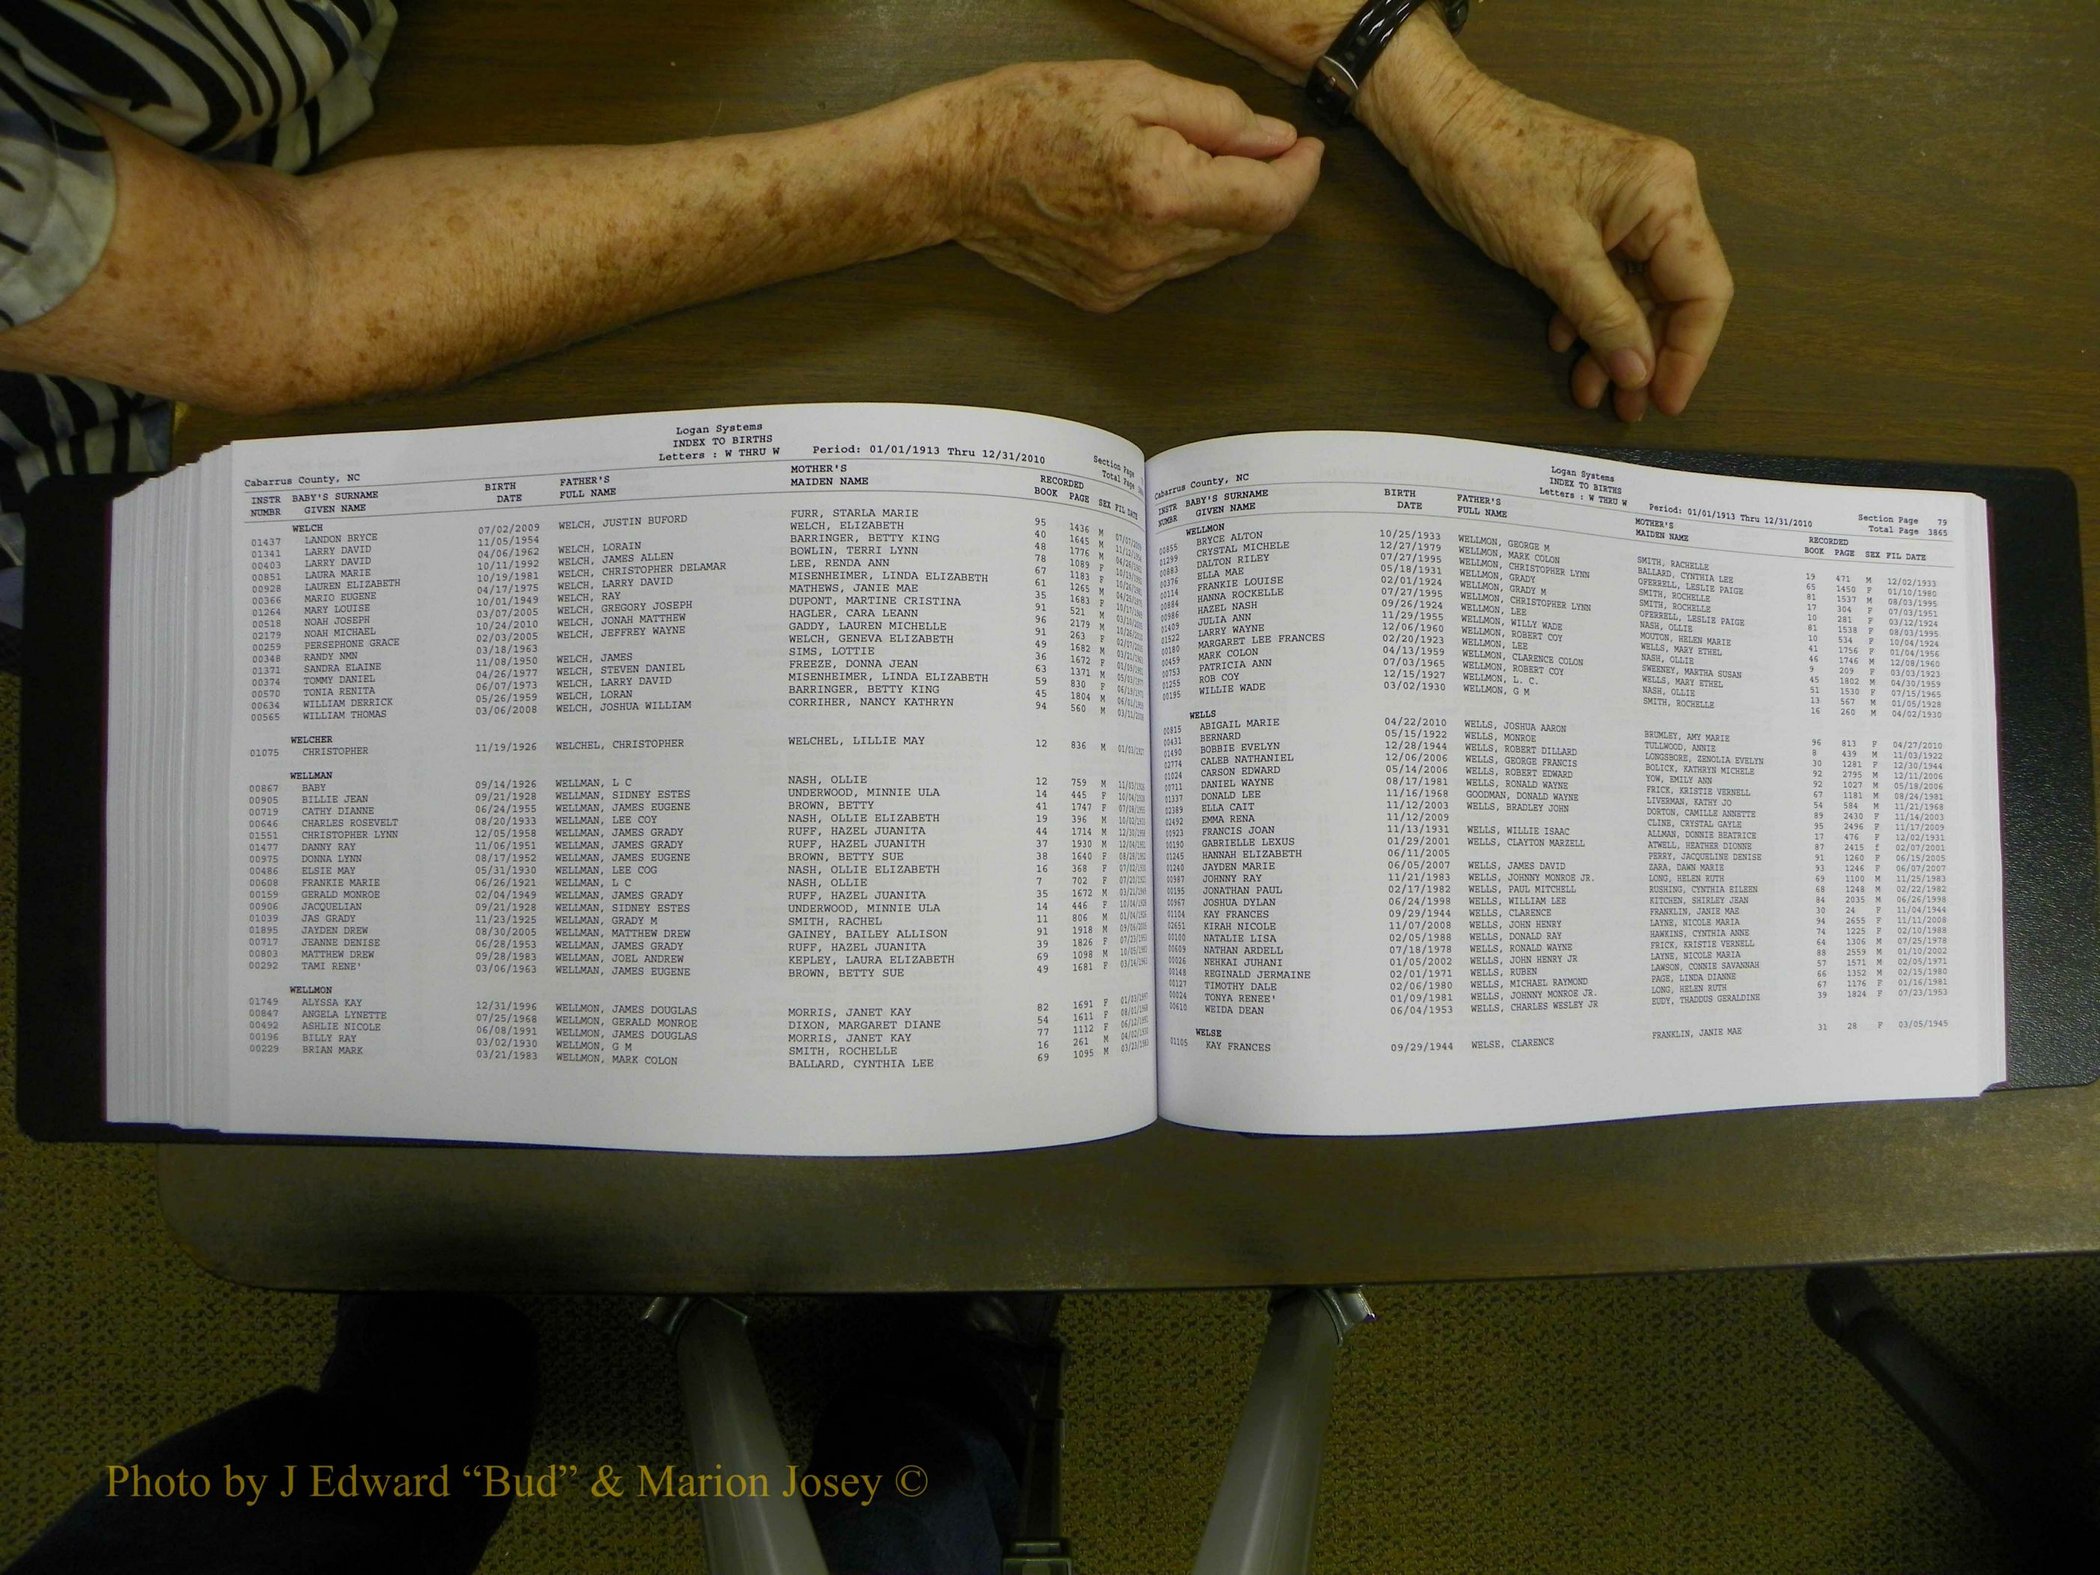 Logan Systems
INDEX TO BIRTHS
Letters : W THRU W Period: 01/01/1913 Thru 12/31/2010 Section Page
Cabarrus County, NC Total Page
INSTR BABY'S SURNAME BIRTH FATHER'S MOTHER'S RECORDED
NUMBR GIVEN NAME DATE FULL NAME MAIDEN NAME BOOK PAGE SEX FIL DATE
WELCH
01437 LANDON BRYCE 07/02/2009 WELCH, JUSTIN BUFORD FURR, STARLA MARIE 95 1436 M
01341 LARRY DAVID 11/05/1954 WELCH, ELIZABETH 40 1645 M
00403 LARRY DAVID 04/06/1962 WELCH, LORAIN BARRINGER, BETTY KING 48 1776 M
00851 LAURA MARIE 10/11/1992 WELCH, JAMES ALLEN BOWLIN, TERRI LYNN 78 1089 F
00928 LAUREN ELIZABETH 10/19/1981 WELCH, CHRISTOPHER DELAMAR LEE, RENDA ANN 67 1183 F
00366 MARIO EUGENE 04/17/1975 WELCH, LARRY DAVID MISENHEIMER, LINDA ELIZABETH 61 1265 M
01264 MARY LOUISE 10/01/1949 WELCH, RAY MATHEWS, JANIE MAE 35 1683 F
00518 NOAH JOSEPH 03/07/2005 WELCH, GREGORY JOSEPH DUPONT, MARTINE CRISTINA 91 521 M
02179 NOAH MICHAEL 10/24/2010 WELCH, JONAH MATTHEW HAGLER, CARA LEANN 96 2179 M
00259 PERSEPHONE GRACE 02/03/2005 WELCH, JEFFREY WAYNE GADDY, LAUREN MICHELLE 91 263 F
00348 RANDY NMN 03/18/1963 WELCH, GENEVA ELIZABETH 49 1682 M
01371 SANDRA ELAINE 11/08/1950 WELCH, JAMES SIMS, LOTTIE 36 1672 F
00374 TOMMY DANIEL 04/26/1977 WELCH, STEVEN DANIEL FREEZE, DONNA JEAN 63 1371 M
00570 TONIA RENITA 06/07/1973 WELCH, LARRY DAVID MISENHEIMER, LINDA ELIZABETH 59 830 F
00634 WILLIAM DERRICK 05/26/1959 WELCH, LORAN BARRINGER, BETTY KING 45 1804 M
00565 WILLIAM THOMAS 03/06/2008 WELCH, JOSHUA WILLIAM CORRIHER, NANCY KATHRYN 94 560 M
WELCHER
01075 CHRISTOPHER 11/19/1926 WELCHEL, CHRISTOPHER WELCHEL, LILLIE MAY 12 836 M
WELLMAN
00867 BABY 09/14/1926 WELLMAN, L C NASH, OLLIE 12 759 M
00905 BILLIE JEAN 09/21/1928 WELLMAN, SIDNEY ESTES UNDERWOOD, MINNIE ULA 14 445 F
00719 CATHY DIANNE 06/24/1955 WELLMAN, JAMES EUGENE BROWN, BETTY 41 1747 F
00646 CHARLES ROSEVELT 08/20/1933 WELLMAN, LEE COY NASH, OLLIE ELIZABETH 19 396 M
01551 CHRISTOPHER LYNN 12/05/1958 WELLMAN, JAMES GRADY RUFF, HAZEL JUANITA 44 1714 M
01477 DANNY RAY 11/06/1951 WELLMAN, JAMES GRADY RUFF, HAZEL JUANITH 37 1930 M
00975 DONNA LYNN 08/17/1952 WELLMAN, JAMES EUGENE BROWN, BETTY SUE 38 1640 F
00486 ELSIE MAY 05/31/1930 WELLMAN, LEE COG NASH, OLLIE ELIZABETH 16 368 F
00608 FRANKIE MARIE 06/26/1921 WELLMAN, L C NASH, OLLIE 7 702 F
00159 GERALD MONROE 02/04/1949 WELLMAN, JAMES GRADY RUFF, HAZEL JUANITA 35 1672 M
00906 JACQUELIAN 09/21/1928 WELLMAN, SIDNEY ESTES UNDERWOOD, MINNIE ULA 14 446 F
01039 JAS GRADY 11/23/1925 WELLMAN, GRADY M SMITH, RACHEL 11 806 M
01895 JAYDEN DREW 08/30/2005 WELLMAN, MATTHEW DREW GAINEY, BAILEY ALLISON 91 1918 M
00717 JEANNE DENISE 06/28/1953 WELLMAN, JAMES GRADY RUFF, HAZEL JUANITA 39 1826 F
00803 MATTHEW DREW 09/28/1983 WELLMAN, JOEL ANDREW KEPLEY, LAURA ELIZABETH 69 1098 M
00292 TAMI RENE' 03/06/1963 WELLMAN, JAMES EUGENE BROWN, BETTY SUE 49 1681 F
WELLMON
01749 ALYSSA KAY 12/31/1996 WELLMON, JAMES DOUGLAS MORRIS, JANET KAY 82 1691 F
00847 ANGELA LYNETTE 07/25/1968 WELLMON, GERALD MONROE DIXON, MARGARET DIANE 54 1611 F
00492 ASHLIE NICOLE 06/08/1991 WELLMON, JAMES DOUGLAS MORRIS, JANET KAY 77 1112 F
00196 BILLY RAY 03/02/1930 WELLMON, G M SMITH, ROCHELLE 16 261 M
00229 BRIAN MARK 03/21/1983 WELLMON, MARK COLON BALLARD, CYNTHIA LEE 69 1095 M
Logan Systems
INDEX TO BIRTHS
Letters : W THRU W Period: 01/01/1913 Thru 12/31/2010 Section Page 79
Cabarrus County, NC Total Page 3865
INSTR BABY'S SURNAME BIRTH FATHER'S MOTHER'S RECORDED
NUMBR GIVEN NAME DATE FULL NAME MAIDEN NAME BOOK PAGE SEX FIL DATE
WELLMON
00855 BRYCE ALTON 10/25/1933 WELLMON, GEORGE M SMITH, RACHELLE 19 471 M 12/02/1933
01299 CRYSTAL MICHELE 12/27/1979 WELLMON, MARK COLON BALLARD, CYNTHIA LEE 65 1450 F 01/10/1980
00883 DALTON RILEY 07/27/1995 WELLMON, CHRISTOPHER LYNN OFERRELL, LESLIE PAIGE 81 1537 M 08/03/1995
00376 ELLA MAE 05/18/1931 WELLMON, GRADY SMITH, ROCHELLE 17 304 F 07/03/1951
00114 FRANKIE LOUISE 02/01/1924 WELLMON, GRADY M SMITH, ROCHELLE 10 281 F 03/12/1924
00884 HANNA ROCKELLE 07/27/1995 WELLMON, CHRISTOPHER LYNN OFERRELL, LESLIE PAIGE 81 1538 F 08/03/1995
00986 HAZEL NASH 09/26/1924 WELLMON, LEE NASH, OLLIE 10 534 F 10/04/1924
01409 JULIA ANN 11/29/1955 WELLMON, WILLY WADE MOUTON, HELEN MARIE 41 1756 F 01/04/1956
01522 LARRY WAYNE 12/06/1960 WELLMON, ROBERT COY WELLS, MARY ETHEL 46 1746 M 12/08/1960
00180 MARGARET LEE FRANCES 02/20/1923 WELLMON, LEE NASH, OLLIE 9 209 F 03/03/1923
00459 MARK COLON 04/13/1959 WELLMON, CLARENCE COLON SWEENEY, MARTHA SUSAN 45 1802 M 04/30/1959
00753 PATRICIA ANN 07/03/1965 WELLMON, ROBERT COY WELLS, MARY ETHEL 51 1530 F 07/15/1965
01255 ROB COY 12/15/1927 WELLMON, L. C. NASH, OLLIE 13 567 M 01/05/1928
00195 WILLIE WADE 03/02/1930 WELLMON, G M SMITH, ROCHELLE 16 260 M 04/02/1930
WELLS
00815 ABIGAIL MARIE 04/22/2010 WELLS, JOSHUA AARON BRUMLEY, AMY MARIE 96 813 F 04/27/2010
00431 BERNARD 05/15/1922 WELLS, MONROE TULLWOOD, ANNIE 8 439 M 11/03/1922
01490 BOBBIE EVELYN 12/28/1944 WELLS, ROBERT DILLARD LONGSBORE, ZENOLIA EVELYN 30 1281 F 12/30/1944
02774 CALEB NATHANIEL 12/06/2006 WELLS, GEORGE FRANCIS BOLICK, KATHRYN MICHELE 92 2795 M 12/11/2006
01024 CARSON EDWARD 05/14/2006 WELLS, ROBERT EDWARD YOW, EMILY ANN 92 1027 M 05/18/2006
00711 DANIEL WAYNE 08/17/1981 WELLS, RONALD WAYNE FRICK, KRISTIE VERNELL 67 1181 M 08/24/1981
01337 DONALD LEE 11/16/1968 GOODMAN, DONALD WAYNE LIVERMAN, KATHY JO 54 584 M 11/21/1968
02389 ELLA CAIT 11/12/2003 WELLS, BRADLEY JOHN DORTON, CAMILLE ANNETTE 89 2430 F 11/14/2003
02492 EMMA RENA 11/12/2009 CLINE, CRYSTAL GAYLE 95 2496 F 11/17/2009
00923 FRANCIS JOAN 11/13/1931 WELLS, WILLIE ISAAC ALLMAN, DONNIE BEATRICE 17 476 F 12/02/1931
00190 GABRIELLE LEXUS 01/29/2001 WELLS, CLAYTON MARZELL ATWELL, HEATHER DIONNE 87 2415 f 02/07/2001
01245 HANNAH ELIZABETH 06/11/2005 PERRY, JACQUELINE DENISE 91 1260 F 06/15/2005
01240 JAYDEN MARIE 06/05/2007 WELLS, JAMES DAVID ZARA, DAWN MARIE 93 1246 F 06/07/2007
00987 JOHNNY RAY 11/21/1983 WELLS, JOHNNY MONROE JR. LONG, HELEN RUTH 69 1100 M 11/25/1983
00195 JONATHAN PAUL 02/17/1982 WELLS, PAUL MITCHELL RUSHING, CYNTHIA EILEEN 68 1248 M 02/22/1982
00967 JOSHUA DYLAN 06/24/1998 WELLS, WILLIAM LEE KITCHEN, SHIRLEY JEAN 84 2035 M 06/26/1998
01104 KAY FRANCES 09/29/1944 WELLS, CLARENCE FRANKLIN, JANIE MAE 30 24 F 11/04/1944
02651 KIRAH NICOLE 11/07/2008 WELLS, JOHN HENRY LAYNE, NICOLE MARIA 94 2655 F 11/11/2008
00100 NATALIE LISA 02/05/1988 WELLS, DONALD RAY HAWKINS, CYNTHIA ANNE 74 1225 F 02/10/1988
00609 NATHAN ARDELL 07/18/1978 WELLS, RONALD WAYNE FRICK, KRISTIE VERNELL 64 1306 M 07/25/1978
00026 NEHKAI JUHANI 01/05/2002 WELLS, JOHN HENRY JR LAYNE, NICOLE MARIA 88 2559 M 01/10/2002
00148 REGINALD JERMAINE 02/01/1971 WELLS, RUBEN LAWSON, CONNIE SAVANNAH 57 1571 M 02/05/1971
00127 TIMOTHY DALE 02/06/1980 WELLS, MICHAEL RAYMOND PAGE, LINDA DIANNE 66 1352 M 02/15/1980
00024 TONYA RENEE' 01/09/1981 WELLS, JOHNNY MONROE JR. LONG, HELEN RUTH 67 1176 F 01/16/1981
00610 WEIDA DEAN 06/04/1953 WELLS, CHARLES WESLEY JR EUDY, THADDUS GERALDINE 39 1824 F 07/23/1953
WELSE
01105 KAY FRANCES 09/29/1944 WELSE, CLARENCE FRANKLIN, JANIE MAE 31 28 F 03/05/1945
Photo by J Edward “Bud” & Marion Josey ©